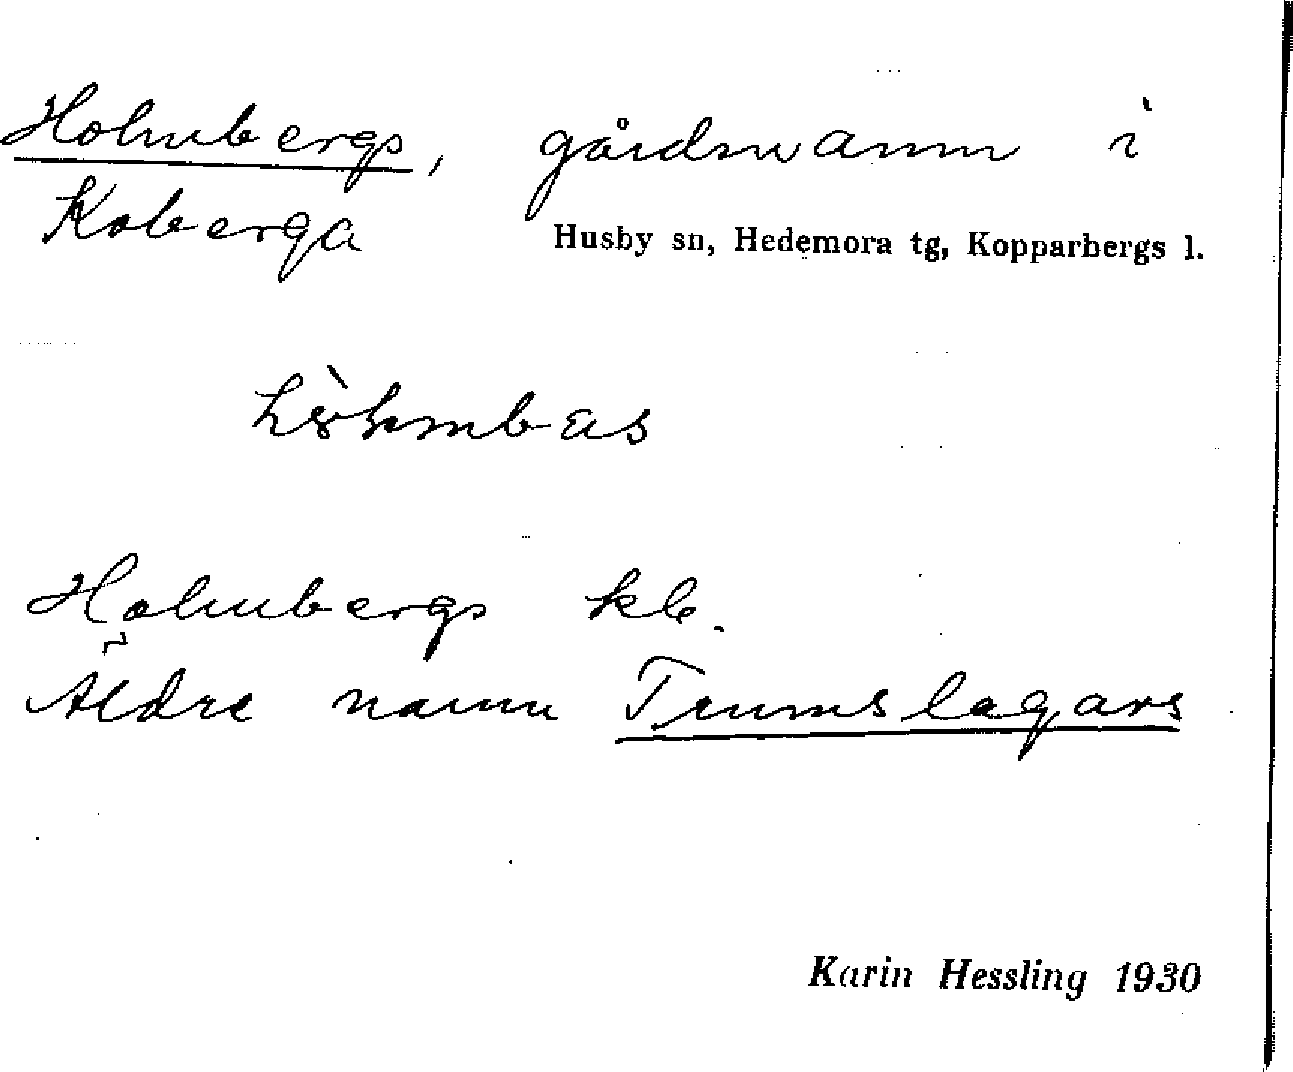 Holmbergs, gårdnamn i
Koberga Husby sn, Hedemora tg, Kopparbergs l.
Holmbergs kb.
Äldre namn Trumslagars
Karin Hessling 1930